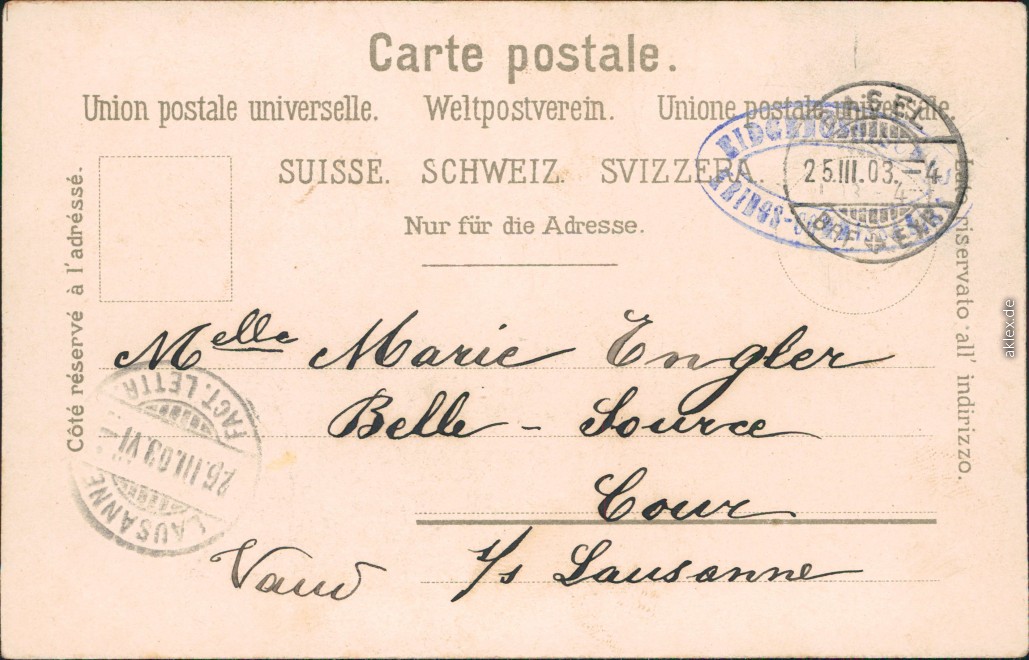 Carte postale.
Union postale universelle. Weltpostverein. Unione postale universale.
SUISSE. SCHWEIZ. SVIZZERA.
Nur für die Adresse.
Côté réservé à l'adresse.
riservato all' indirizzo.
25.III.03.-4
Melle Marie Engler
Belle - Source
Cour
s/s Lausanne
Vaud
LAUSANNE
26.III.03.VI
FACT. LETTR.
aklex.de